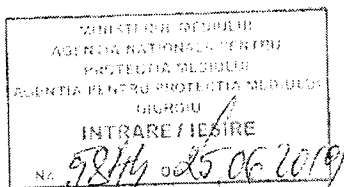 MINISTERUL MEDIULUI
AGENTIA NATIONALA PENTRU
PROTECTIA MEDIULUI
AGENTIA PENTRU PROTECTIA MEDIULUI
GIURGIU
INTRARE / IESIRE
No. 25 06 2019